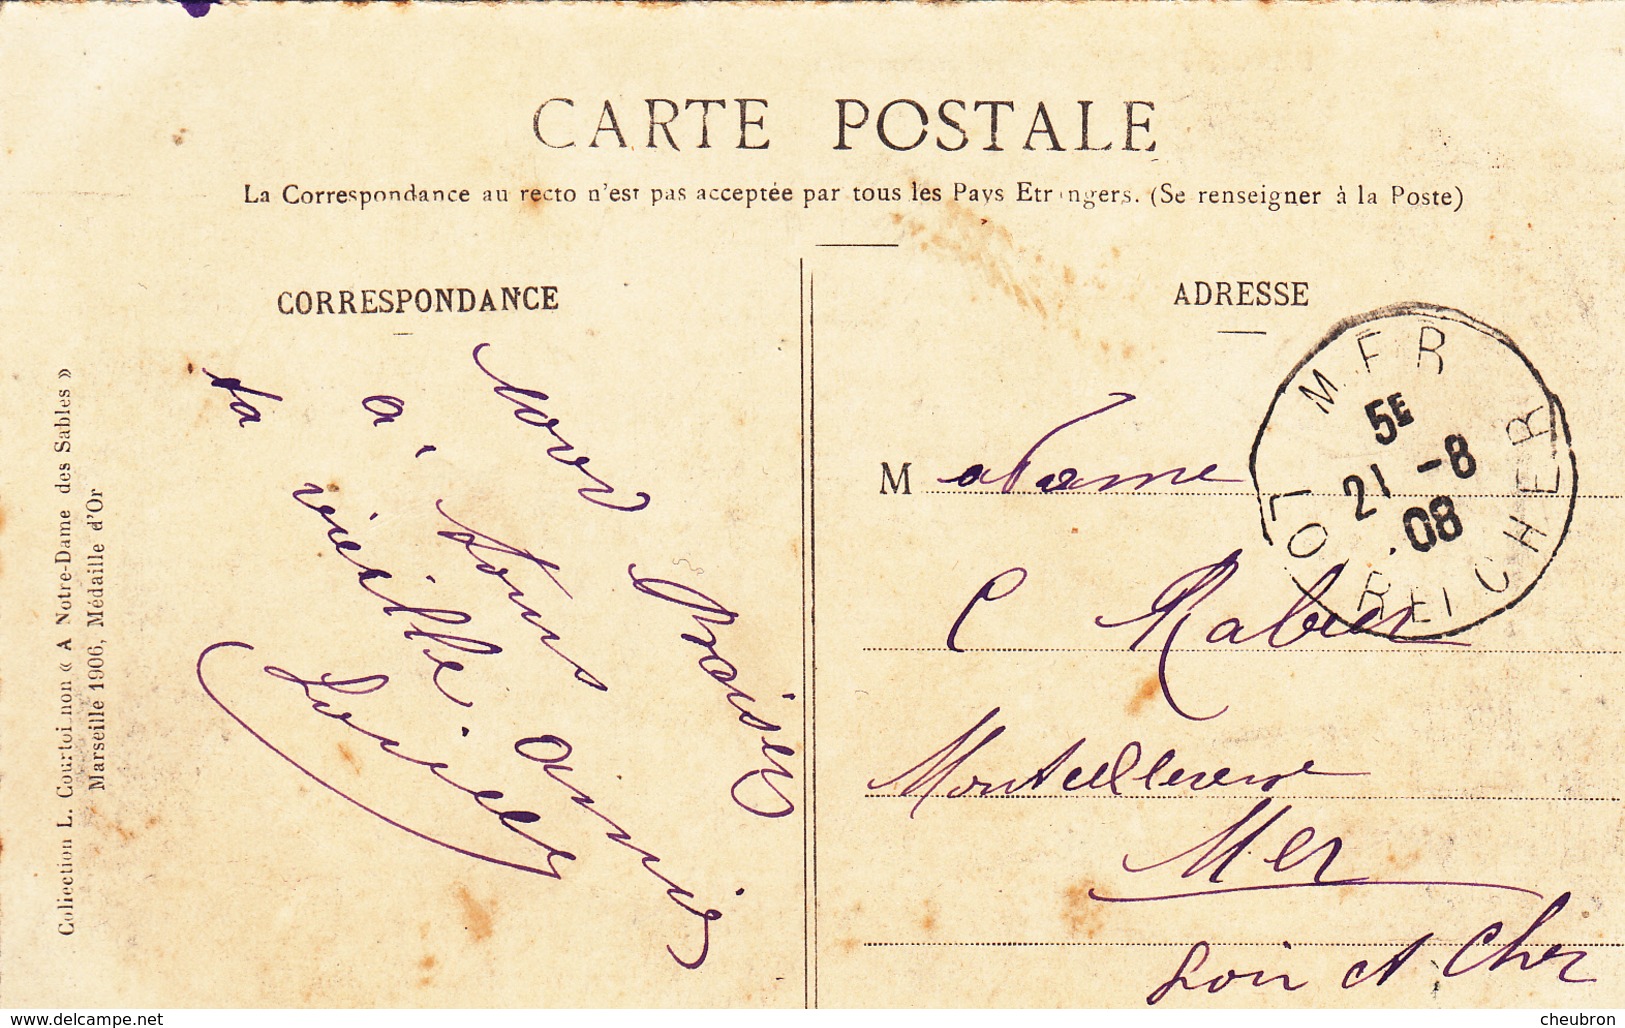 CARTE POSTALE
La Correspondance au recto n'est pas acceptée par tous les Pays Etrangers. (Se renseigner à la Poste)
CORRESPONDANCE
ADRESSE
Collection L. Courtoi non « A Notre-Dame des Sables »
Marseille 1906, Médaille d'Or
baiser
à tous
amis
ta vieille
M adame
C Rabier
Mer
Loir et Cher
MER
5E
21 -8
08
LOIR ET CHER
delcampe.net
cheubron